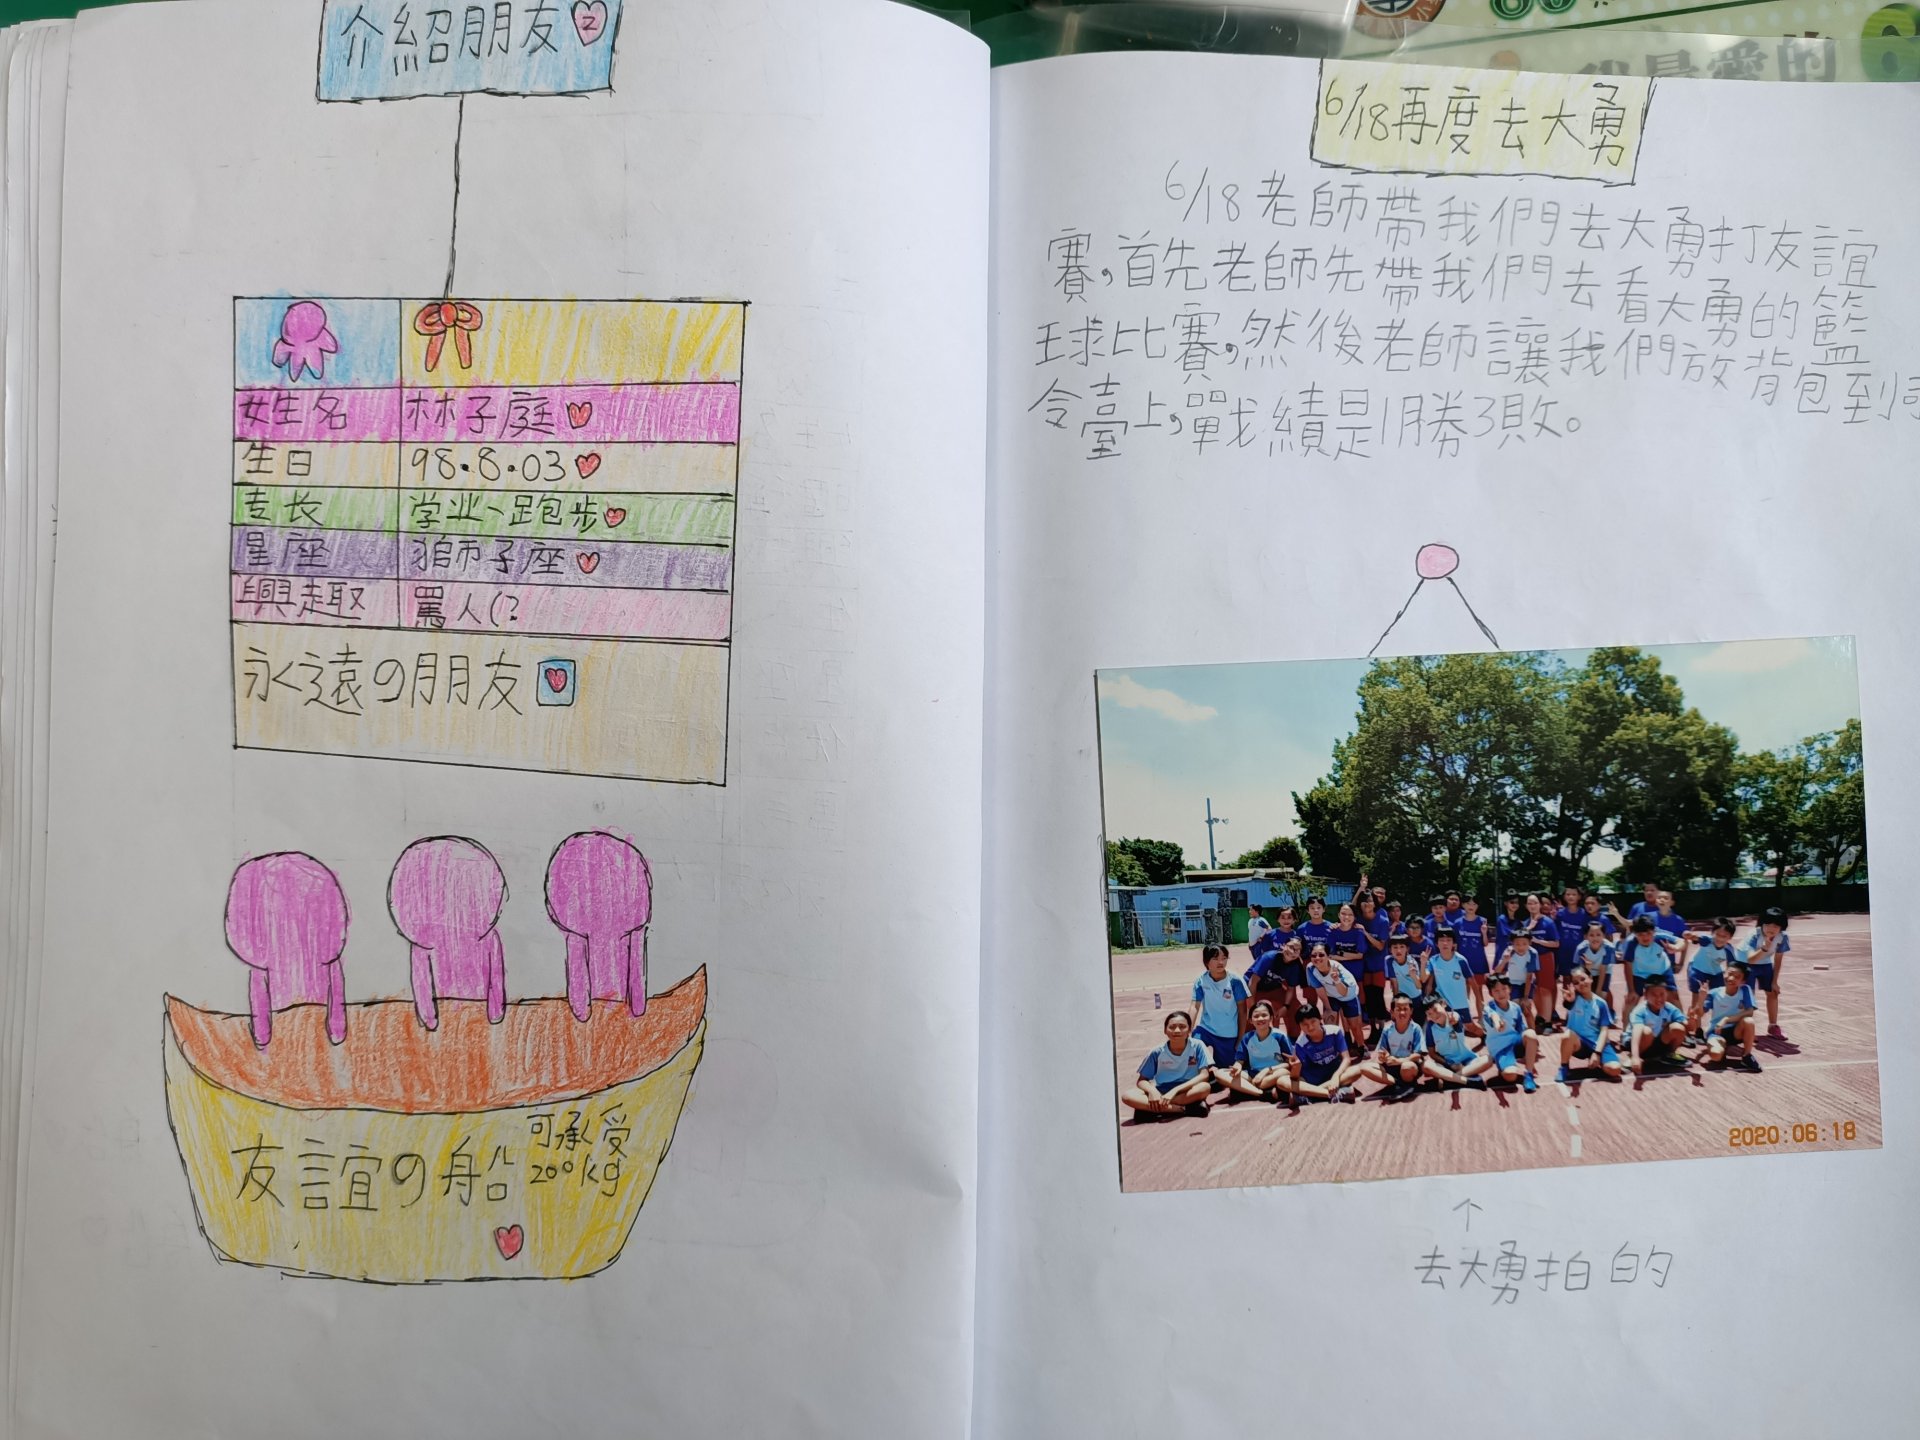 介紹朋友 2
姓名 林子庭
生日 98.8.03
专长 学业、跑步
星座 獅子座
興趣 罵人(?
永遠の朋友
友誼の船
可承受
200kg
6/18再度去大勇
6/18老師帶我們去大勇打友誼
賽,首先老師先帶我們去看大勇的籃
球比賽,然後老師讓我們放背包到司
令臺上,戰績是1勝3敗。
2020.06.18
↑
去大勇拍的
最愛的